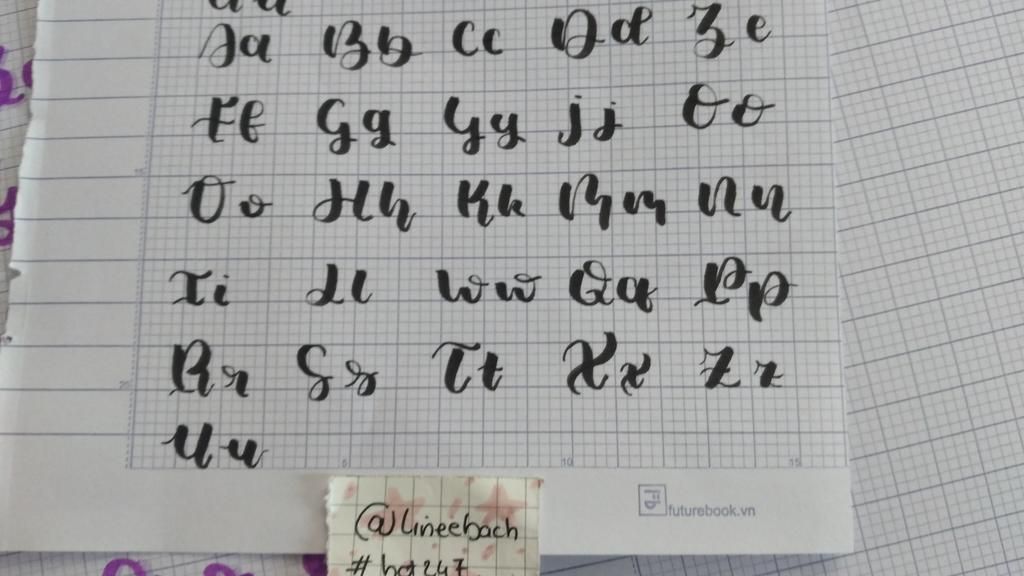 Aa Bb Cc Dd Ee
Ff Gg Yy jj Oo
Oo Hh Kk Mm Nn
Ii Ll Ww Qq Pp
Rr Ss Tt Xx Zz
Uu
@lineebach
futurebook.vn